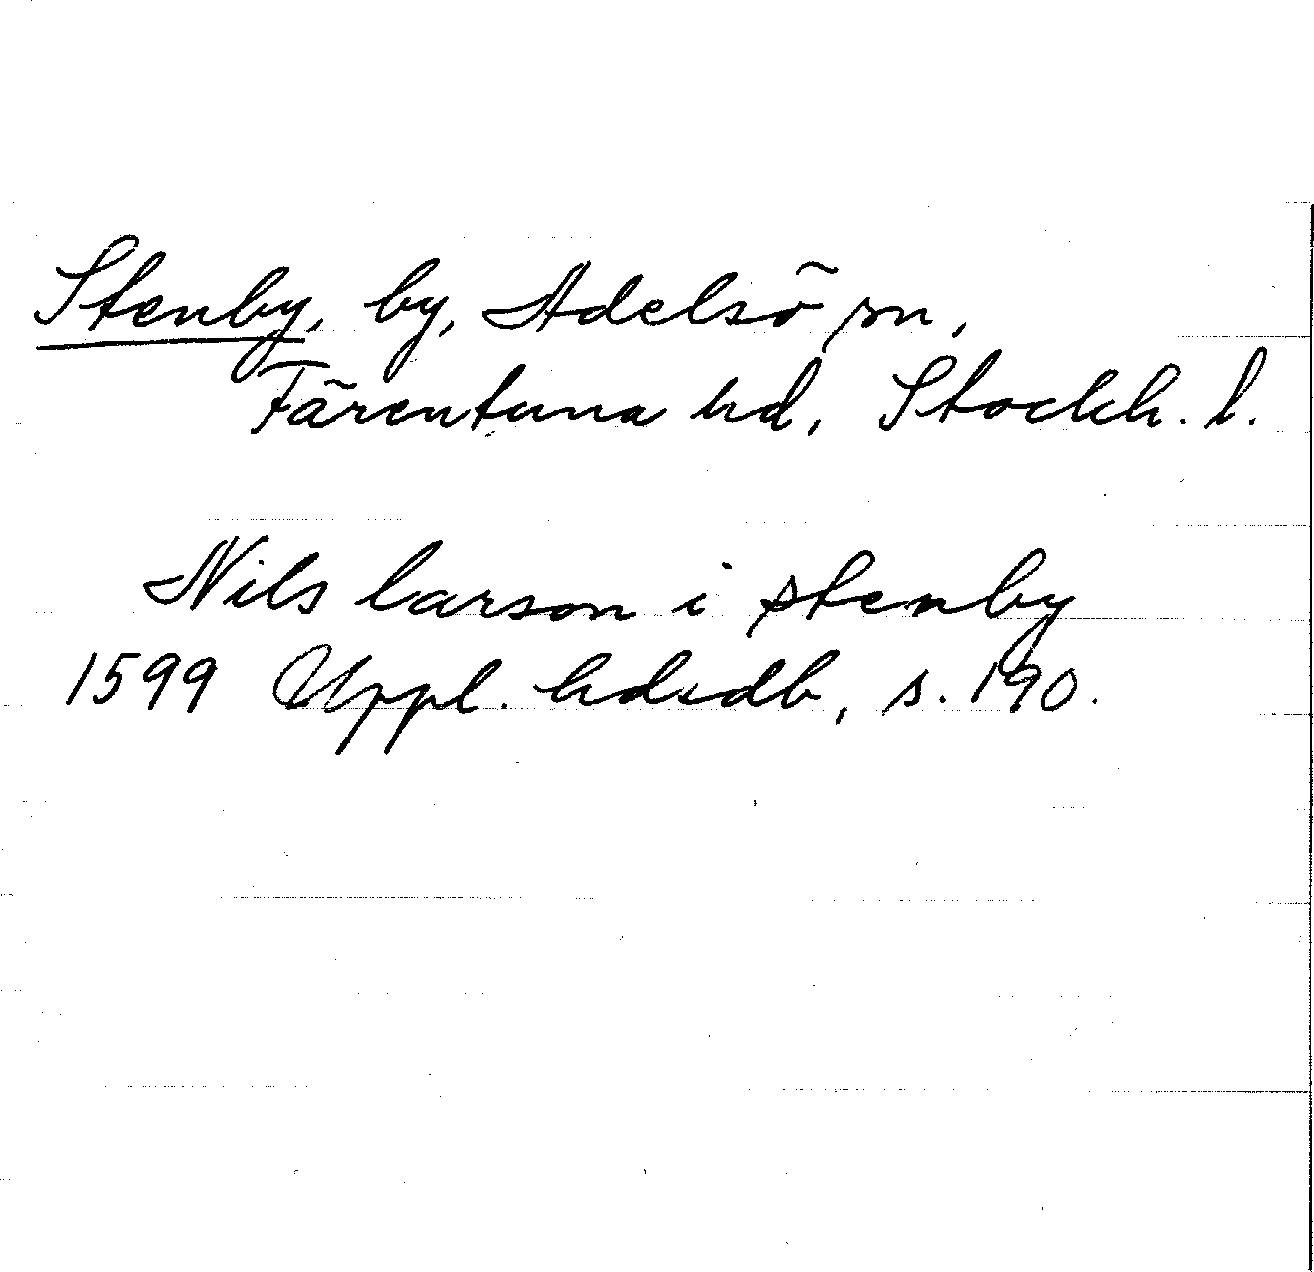 Stenby, by, Adelsö sn,
Färentuna hd, Stockh. l.
Nils larson i stenby
1599 Uppl. hdsdb, s. 190.